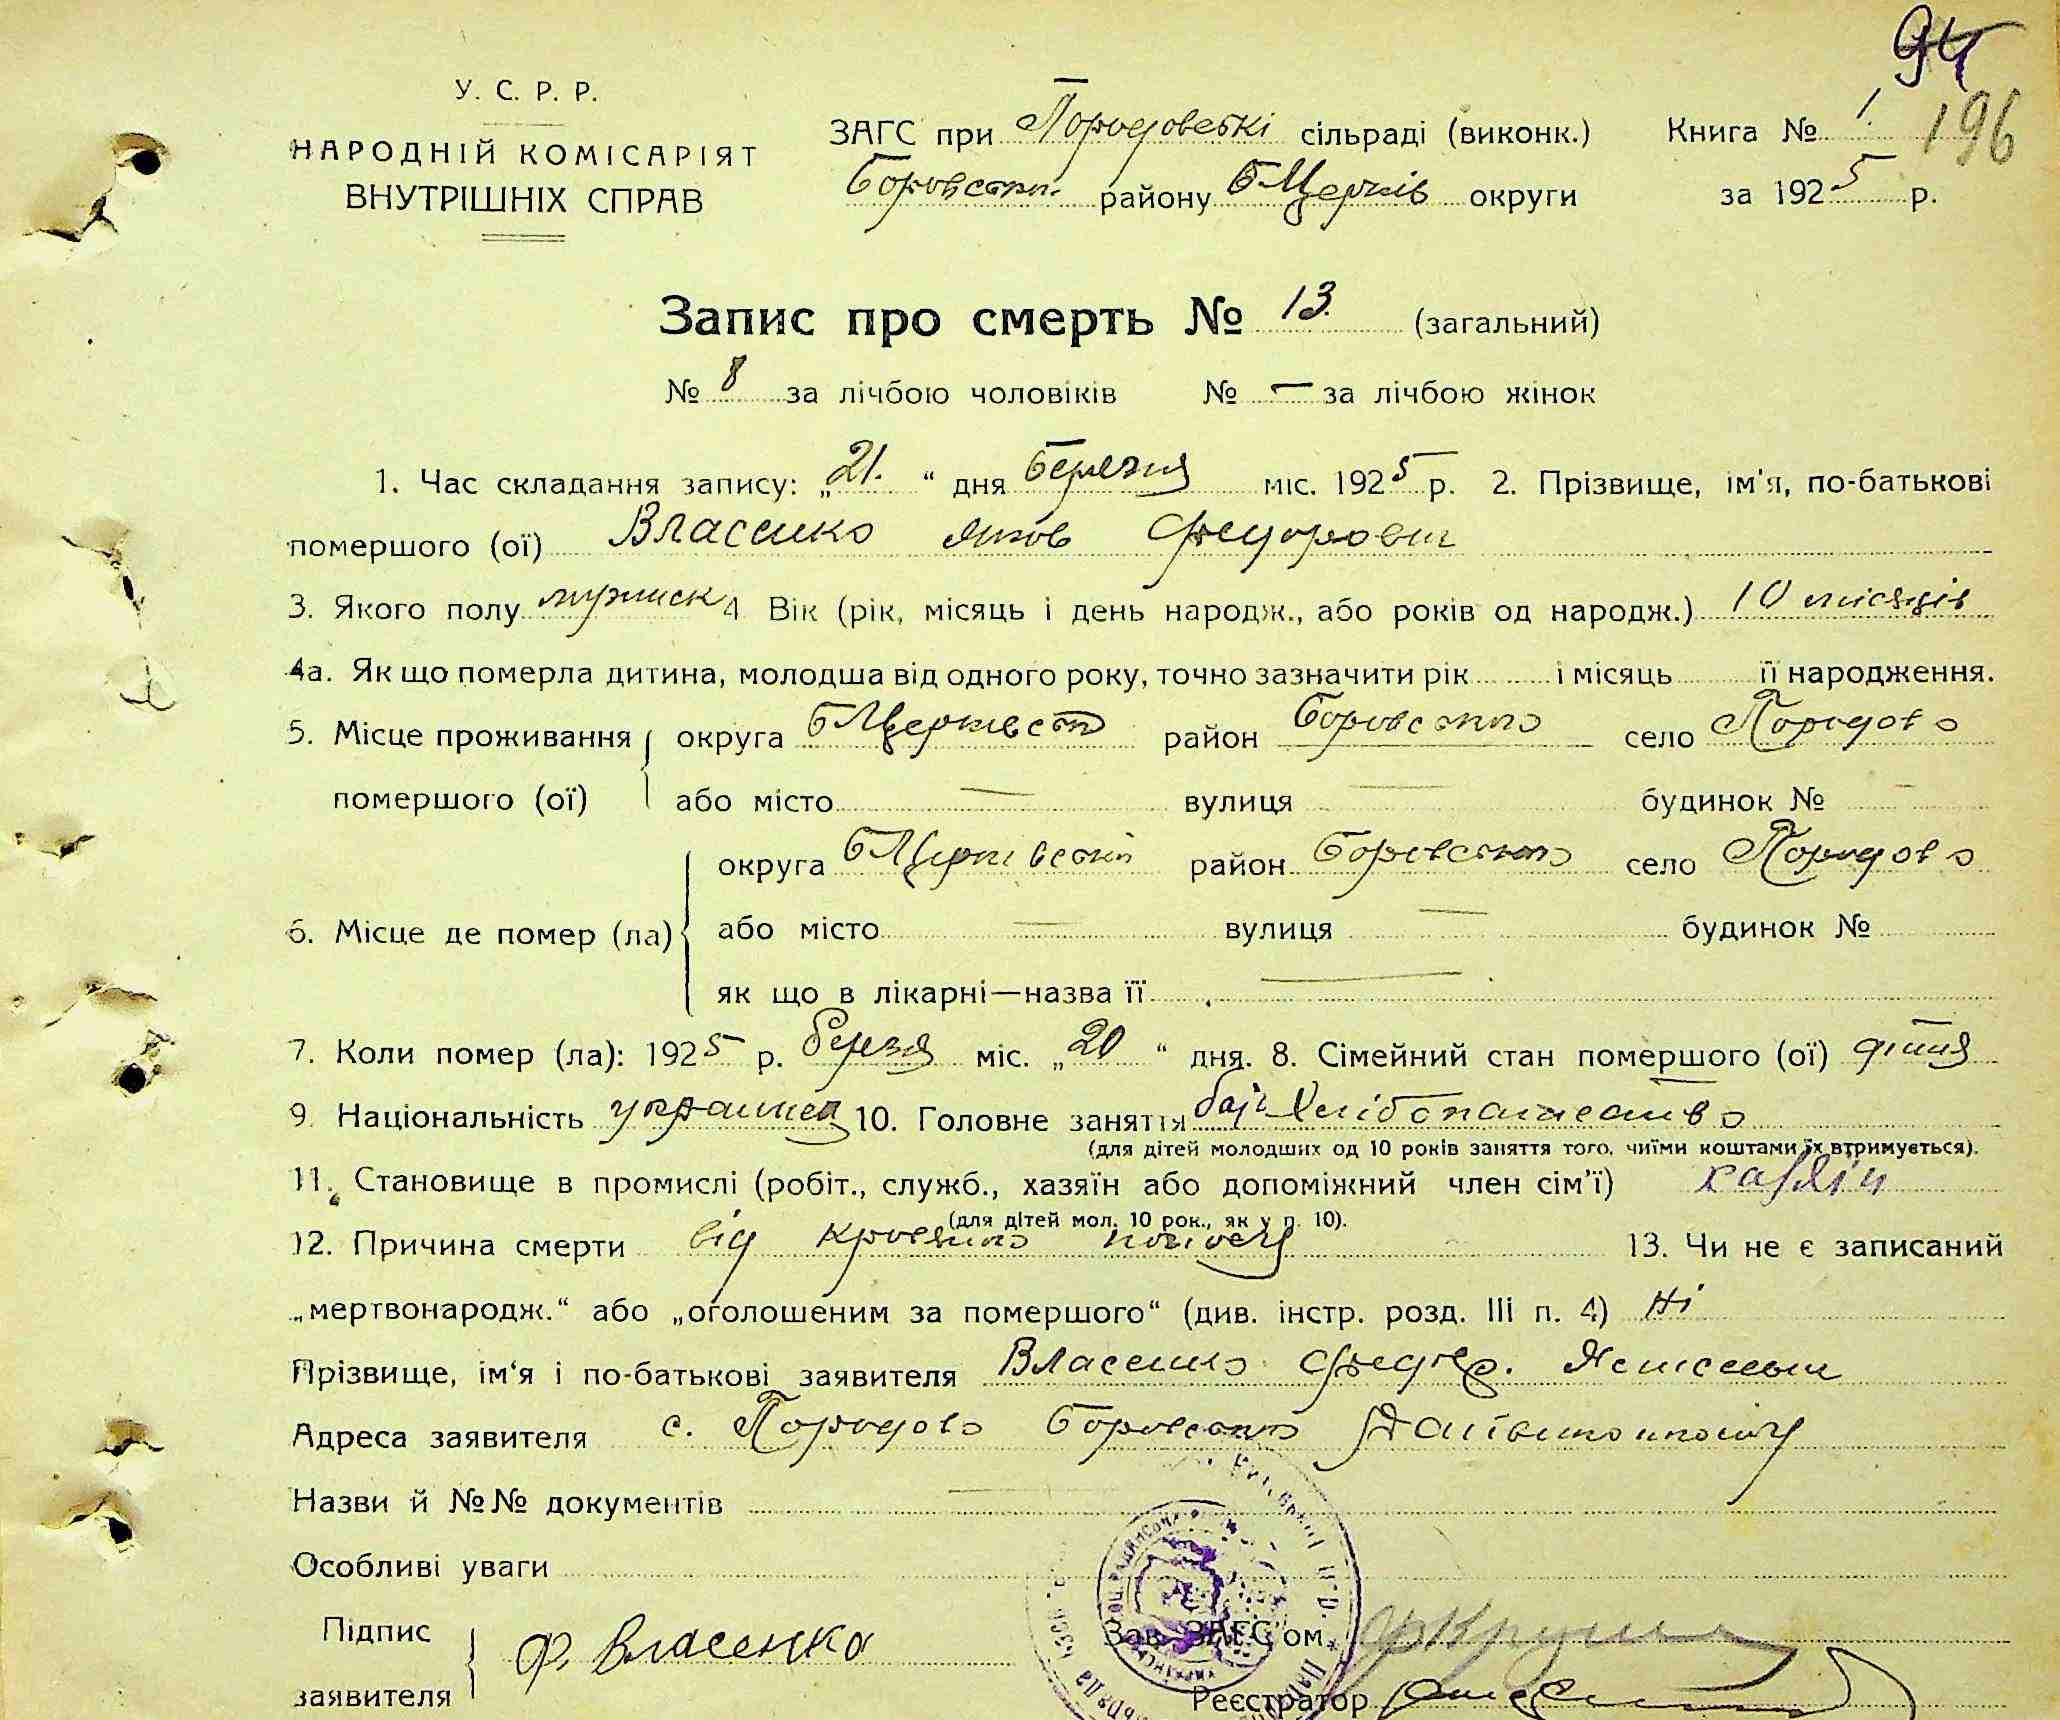 94
У. С. Р. Р.
НАРОДНІЙ КОМІСАРІЯТ
ВНУТРІШНІХ СПРАВ
ЗАГС при сільраді (виконк.) Книга № 1. 196
району БЦерків округи за 1925 р.
Запис про смерть № 13. (загальний)
№ 8 за лічбою чоловіків № — за лічбою жінок
1. Час складання запису: „21." дня березня міс. 1925 р. 2. Прізвище, ім'я, по-батькові
помершого (ої) Власенко Яков Федорович
3. Якого полу мужеск 4 Вік (рік, місяць і день народж., або років од народж.) 10 місяців
4а. Як що померла дитина, молодша від одного року, точно зазначити рік і місяць її народження.
5. Місце проживання округа район село
помершого (ої) або місто — вулиця — будинок № —
округа район село
6. Місце де помер (ла) або місто — вулиця — будинок №
як що в лікарні—назва її —
7. Коли помер (ла): 1925 р. березня міс. „20" дня. 8. Сімейний стан помершого (ої) дітя
9. Національність 10. Головне заняття хлібопашество
(для дітей молодших од 10 років заняття того, чиїми коштами їх втримується).
11. Становище в промислі (робіт., служб., хазяїн або допоміжний член сім'ї) хазяін
(для дітей мол. 10 рок., як у п. 10).
12. Причина смерти від кровяного поносу 13. Чи не є записаний
„мертвонародж." або „оголошеним за помершого" (див. інстр. розд. III п. 4) Ні
Прізвище, ім'я і по-батькові заявителя Власенко Федор.
Адреса заявителя с.
Назви й №№ документів —
Особливі уваги
Підпис заявителя Ф. Власенко
Зав. ЗАГС'ом
Реєстратор